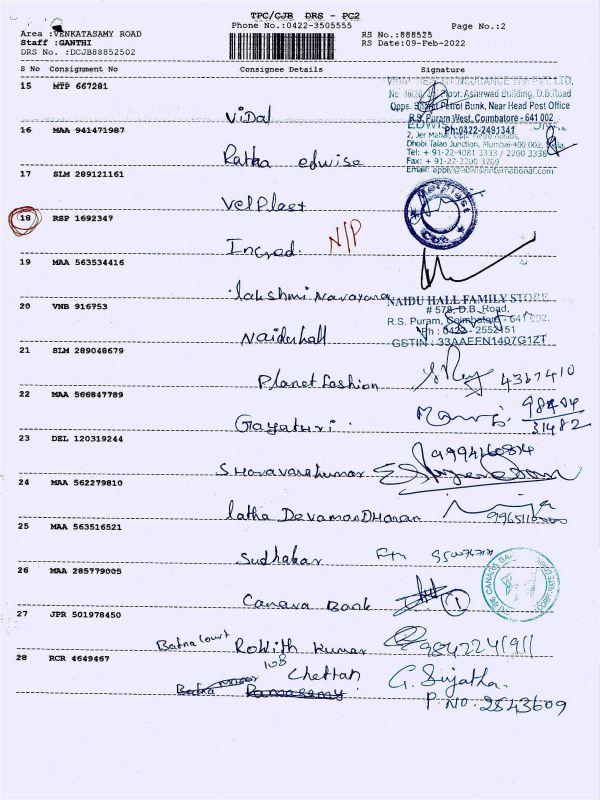 TPC/CJB DRS - PC2
Phone No.:0422-3505555 Page No.:2
Area :VENKATASAMY ROAD RS No.:888525
Staff :GANTHI RS Date:09-Feb-2022
DRS No. :DCJB88852502
S No Consignment No Consignee Details Signature
15 MTP 667281
Vidal
Opps. Bharat Petrol Bunk, Near Head Post Office
R.S. Puram West, Coimbatore - 641 002
Ph:0422-2491341
16 MAA 941471987
Ratha edwise
Dhobi Talao Junction, Mumbai-400 002,
Tel: + 91-22-4081 3333 / 2200 3336
Fax: + 91-22-2200 3269
17 SLM 289121161
Velplast
18 RSP 1692347
Ingrad. N/P
19 MAA 563534416
lakshmi Narayana
20 VNB 916753
Naiduhall
NAIDU HALL FAMILY STORE
# 578, D.B. Road,
R.S. Puram, Coimbatore - 641 002.
Ph : 0422 - 2552151
GSTIN : 33AAEFN1407G1ZT
21 SLM 289048679
Planet fashion 4367410
22 MAA 566847789
Gayathri 98404
31482
23 DEL 120319244
24 MAA 562279810
latha Devaman Dharan
25 MAA 563516521
Sudhakar
26 MAA 285779005
Canara Bank 1
27 JPR 501978450
Batna court Rohith kumar 9842241911
28 RCR 4649467
108 Chettan G. Sujatha.
Batna Ramasamy P. NO: 2543609